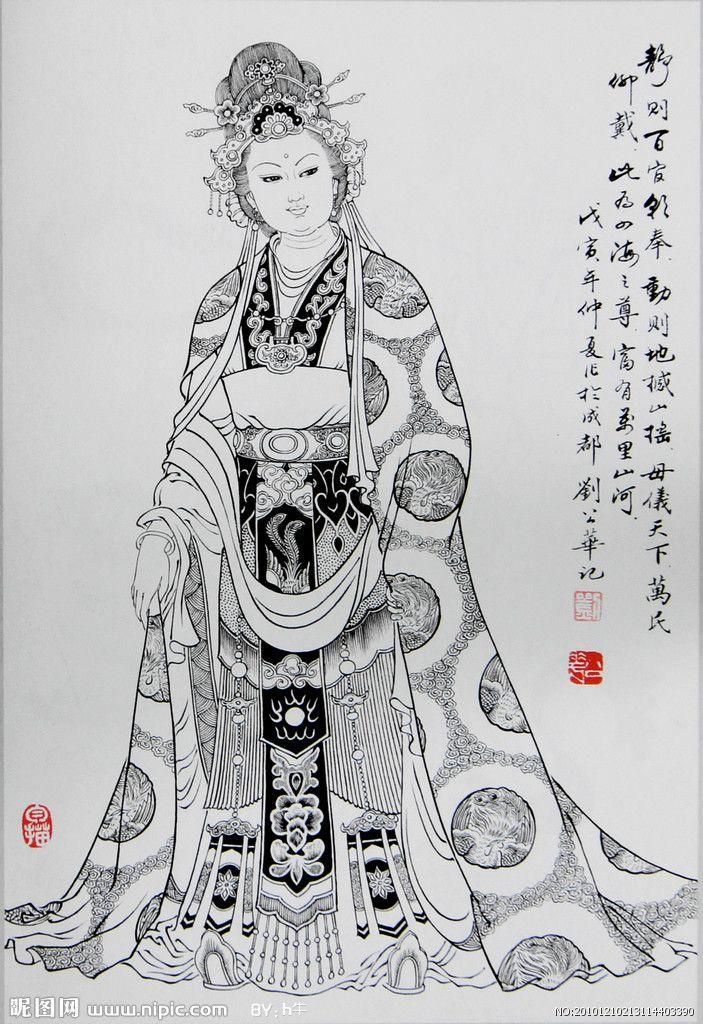 静则百官朝奉動则地撼山摇母儀天下萬民
仰戴此为四海之尊富有萬里山河
戊寅年仲夏作於成都劉公華记
劉
公華
白描
昵图网 www.nipic.com BY:h牛
NO:20101210213114403390